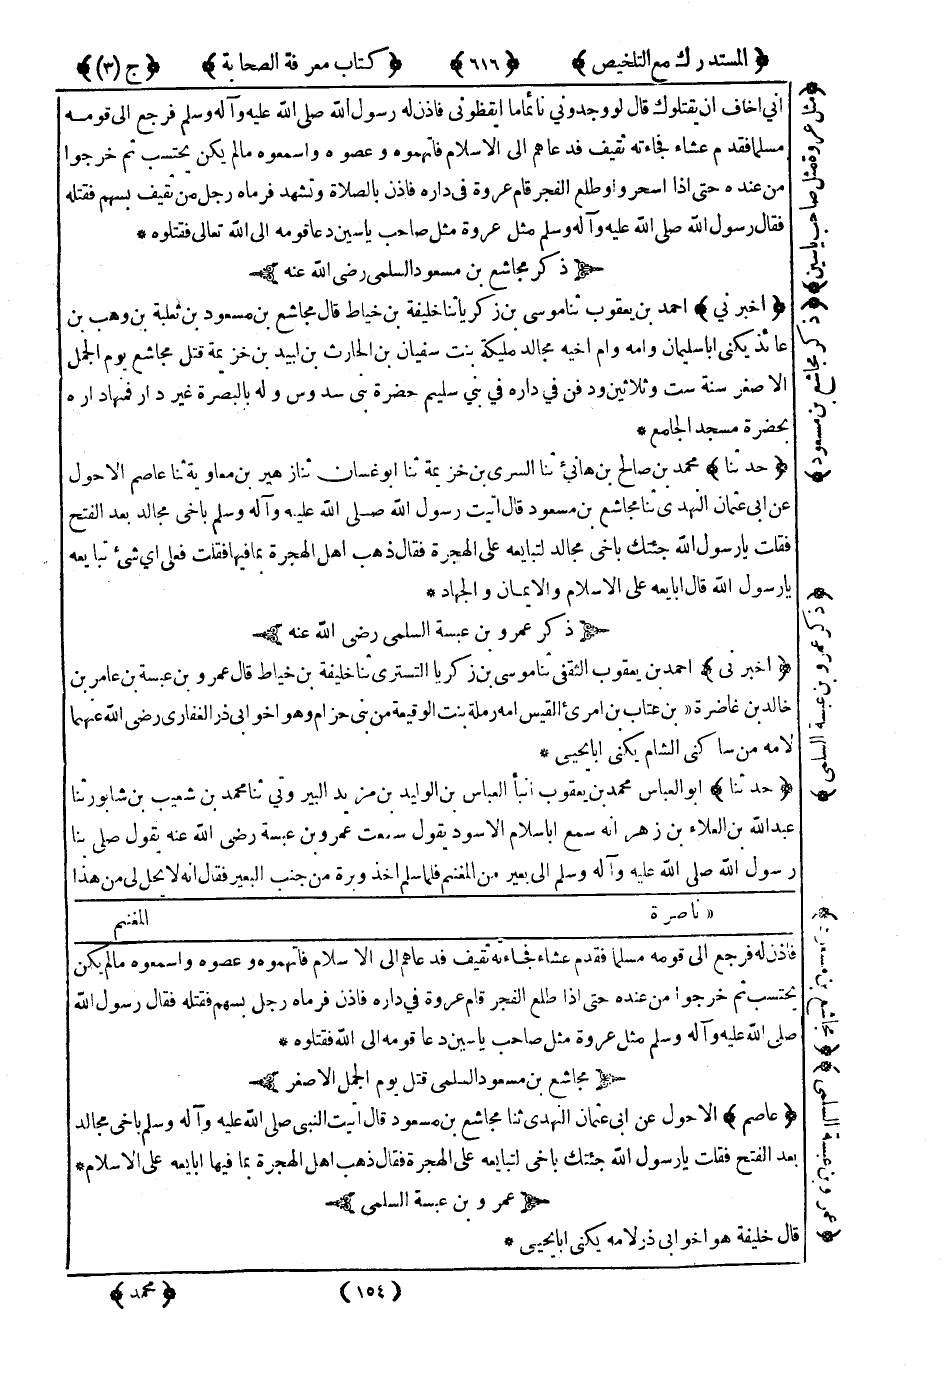 ﴿ المستدرك مع التلخيص ﴾ ﴿ ٦١٦ ﴾ ﴿ كتاب معرفة الصحابة ﴾ ﴿ ج (٣) ﴾
اني اخاف ان يقتلوك قال لو وجدوني نائما ما ايقظوني فاذن له رسول الله صلى الله عليه وآله وسلم فرجع الى قومه
مسلما فقدم عشاء فجاءته ثقيف فدعاهم الى الاسلام فاتهموه وعصوه واسمعوه مالم يكن يحتسب ثم خرجوا
من عنده حتى اذا اسحروا وطلع الفجر قام عروة فى داره فاذن بالصلاة وتشهد فرماه رجل من ثقيف بسهم فقتله
فقال رسول الله صلى الله عليه وآله وسلم مثل عروة مثل صاحب ياسين دعا قومه الى الله تعالى فقتلوه *
ذكر مجاشع بن مسعود السلمى رضى الله عنه
﴿ اخبرني ﴾ احمد بن يعقوب ثنا موسى بن زكريا ثنا خليفة بن خياط قال مجاشع بن مسعود بن ثعلبة بن وهب بن
عائذ يكنى اباسليمان وامه وام اخيه مجالد مليكة بنت سفيان بن الحارث بن لبيد بن خزيمة قتل مجاشع يوم الجمل
الاصغر سنة ست وثلاثين ودفن في داره في بني سليم حضرة بنى سدوس وله بالبصرة غير دار فمنها داره
بحضرة مسجد الجامع *
﴿ حدثنا ﴾ محمد بن صالح بن هانئ ثنا السرى بن خزيمة ثنا ابوغسان ثنا زهير بن معاوية ثنا عاصم الاحول
عن ابى عثمان النهدى ثنا مجاشع بن مسعود قال اتيت رسول الله صلى الله عليه وآله وسلم باخى مجالد بعد الفتح
فقلت يارسول الله جئتك باخى مجالد لتبايعه على الهجرة فقال ذهب اهل الهجرة بما فيها فقلت فعلى اى شئ تبايعه
يارسول الله قال ابايعه على الاسلام والايمان والجهاد *
ذكر عمرو بن عبسة السلمى رضى الله عنه
﴿ اخبرنى ﴾ احمد بن يعقوب الثقفى ثنا موسى بن زكريا التسترى ثنا خليفة بن خياط قال عمرو بن عبسة بن عامر بن
خالد بن غاضرة « بن عتاب بن امرئ القيس امه رملة بنت الوقيعة من بنى حزام وهو اخو ابى ذر الغفارى رضى الله عنهما
لامه من ساكنى الشام يكنى ابايحيى *
﴿ حدثنا ﴾ ابو العباس محمد بن يعقوب انبأ العباس بن الوليد بن مزيد البيروتي ثنا محمد بن شعيب بن شابور ثنا
عبدالله بن العلاء بن زهر انه سمع اباسلام الاسود يقول سمعت عمرو بن عبسة رضى الله عنه يقول صلى بنا
رسول الله صلى الله عليه وآله وسلم الى بعير من المغنم فلما سلم اخذ وبرة من جنب البعير فقال انه لا يحل لى من هذا
المغنم
« ناصرة
فاذن له فرجع الى قومه مسلما فقدم عشاء فجاءته ثقيف فدعاهم الى الاسلام فاتهموه وعصوه واسمعوه مالم يكن
يحتسب ثم خرجوا من عنده حتى اذا طلع الفجر قام عروة في داره فاذن فرماه رجل بسهم فقتله فقال رسول الله
صلى الله عليه وآله وسلم مثل عروة مثل صاحب ياسين دعا قومه الى الله فقتلوه *
مجاشع بن مسعود السلمى قتل يوم الجمل الاصغر
﴿ عاصم ﴾ الاحول عن ابى عثمان النهدى ثنا مجاشع بن مسعود قال اتيت النبى صلى الله عليه وآله وسلم باخى مجالد
بعد الفتح فقلت يارسول الله جئتك باخى لتبايعه على الهجرة فقال ذهب اهل الهجرة بما فيها ابايعه على الاسلام *
عمرو بن عبسة السلمى
قال خليفة هو اخو ابى ذر لامه يكنى ابايحيى *
(١٥٤)
﴿ محمد ﴾
﴿ مثل عروة مثل صاحب ياسين ﴾
﴿ ذكر مجاشع بن مسعود ﴾
﴿ ذكر عمرو بن عبسة السلمى ﴾
﴿ مجاشع بن مسعود ﴾
﴿ عمرو بن عبسة السلمى ﴾